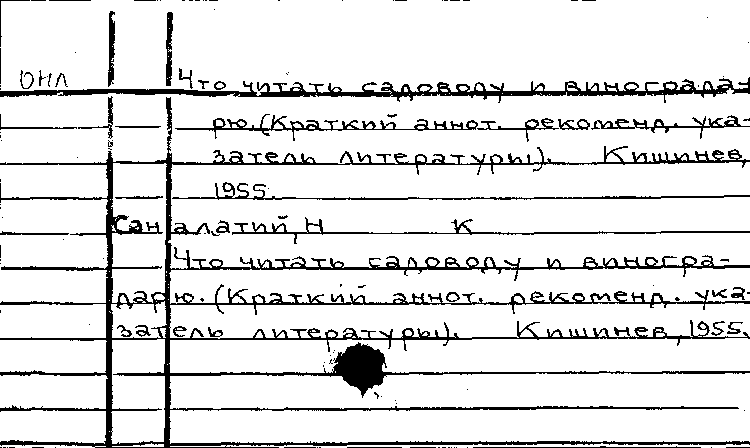 ОНЛ Что читать садоводу и виноградa-
рю. (Краткий аннот. рекоменд. ука-
затель литературы). Кишинев,
1955.
Сан алатий, Н К
Что читать садоводу и виногра-
дарю. (Краткий аннот. рекоменд. ука-
затель литературы). Кишинев, 1955.